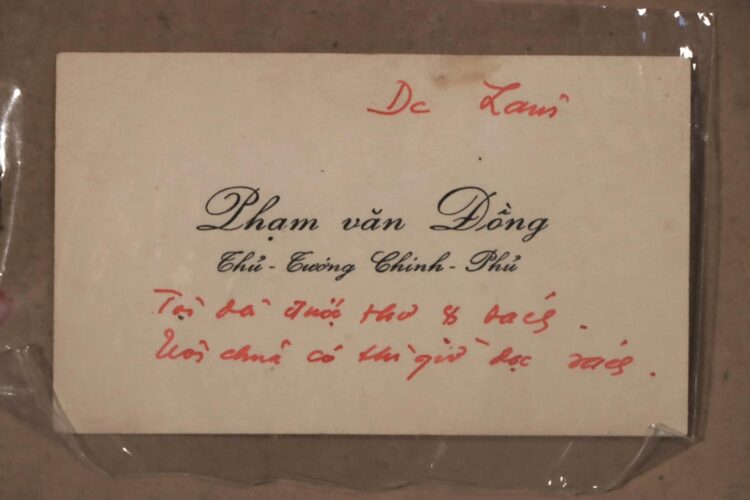 Dc Lanh
Phạm văn Đồng
Thủ-Tướng Chính-Phủ
Tôi đã được thơ & sách.
chưa có thì giờ đọc sách.